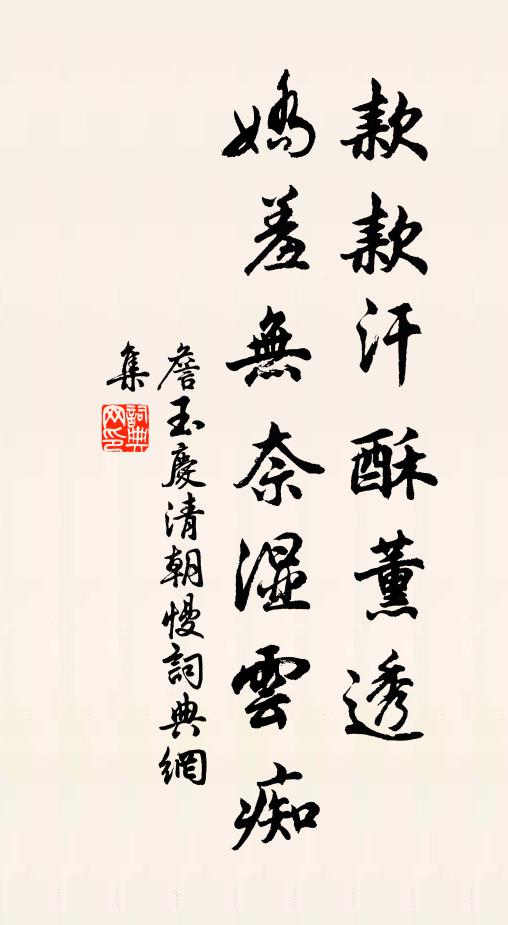 款款汗酥薰透
嬌羞無奈濕雲痴
詹玉慶清朝慢詞典網
集
詞典網印